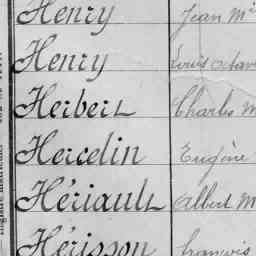 Henry Jean M
Henry Louis Octav
Herbert Charles M
Hercelin Eugène
Hériault Albert M
Hérisson François